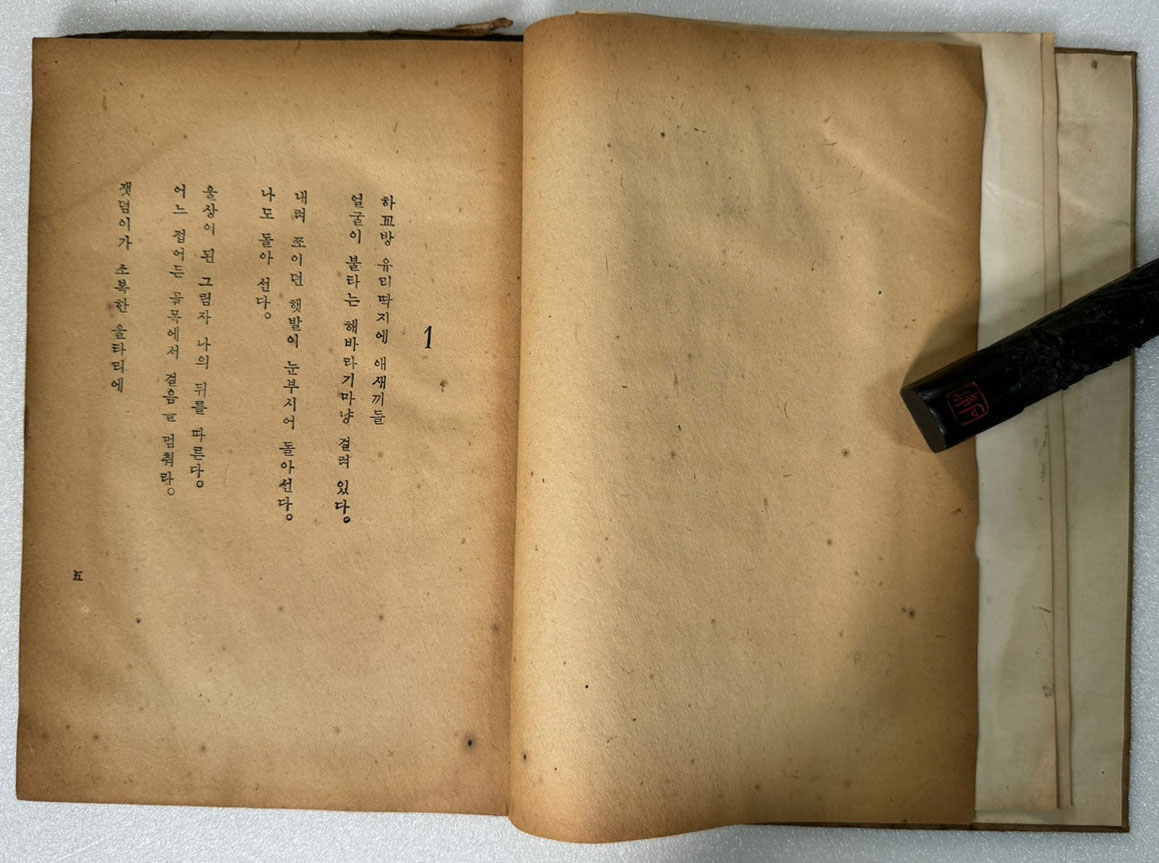 1
하꼬방 유리딱지에 애새끼들
얼굴이 불타는 해바라기마냥 걸려 있다。
내려 쪼이던 햇발이 눈부시어 돌아선다。
나도 돌아 선다。
울상이 된 그림자 나의 뒤를 따른다。
어느 접어든 골목에서 걸음ㄹ 멈춰라。
잿덤이가 소복한 울타리에
五